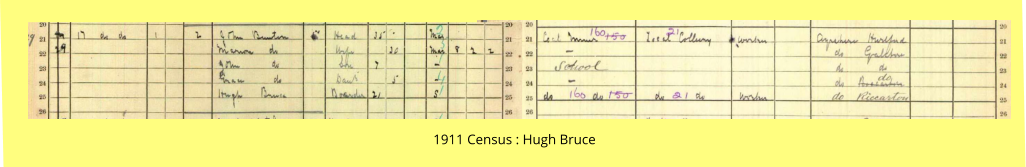 20 20 20 20
21 17 do do 1 2 John Head 35 Mar 21 21 Coal Miner 160 150 Coal 21 Colliery Worker Ayrshire Hurlford 21
22 Marion do Wife 30 Mar 8 2 2 22 22 — do Galston 22
23 John do Son 7 — 23 23 School do do 23
24 Grace do Daur 5 24 24 — do do 24
25 Hugh Bruce Boarder 21 S 25 25 do 160 do 150 do 21 do Worker do Riccarton 25
26 26 26 26
1911 Census : Hugh Bruce